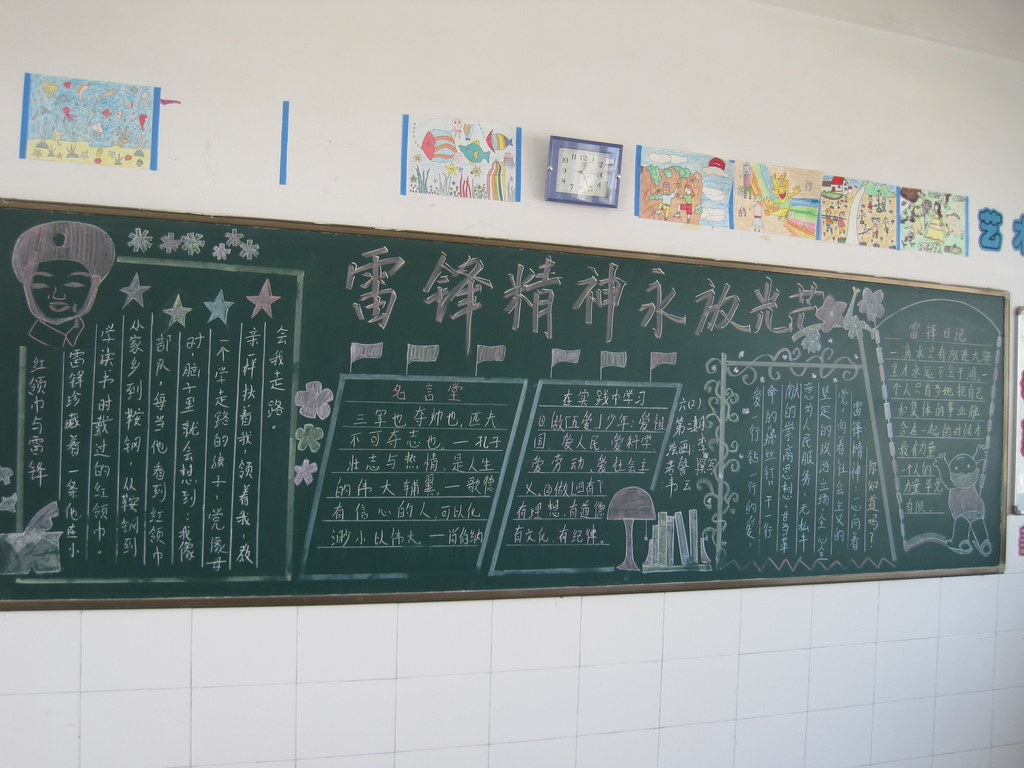 雷锋精神永放光芒
红领巾与雷锋
雷锋珍藏着一条他在小
学读书时戴过的红领巾。
从家乡到鞍钢,从鞍钢到
部队,每当他看到红领巾
时,脑子里就会想到:我像
一个学走路的孩子,党像母
亲一样扶着我,领着我,教
会我走路。
名言堂
三军也夺帅也,匹夫
不可夺志也。一孔子
壮志与热情,是人生
的伟大辅翼。一歌德
有信心的人,可以化
渺小以伟大。一肖伯纳
在实践中学习
①做“五爱”少年:爱祖
国 爱人民 爱科学
爱劳动、爱社会主
义。②做“四有”
有理想,有道德
有文化,有纪律。
你知道吗?
雷锋精神:一心向着
党,向着社会主义的
坚定的政治立场,全心全
意为人民服务,无私奉
命的螺丝钉”干一行
爱一行 钻一行的
雷锋日记
一滴水只有放进大海
里才永远不会干涸,一
个人只有当他把自己
和集体的事业融
合在一起的时候才
最有力量
一个人的
力量是
有限
艺